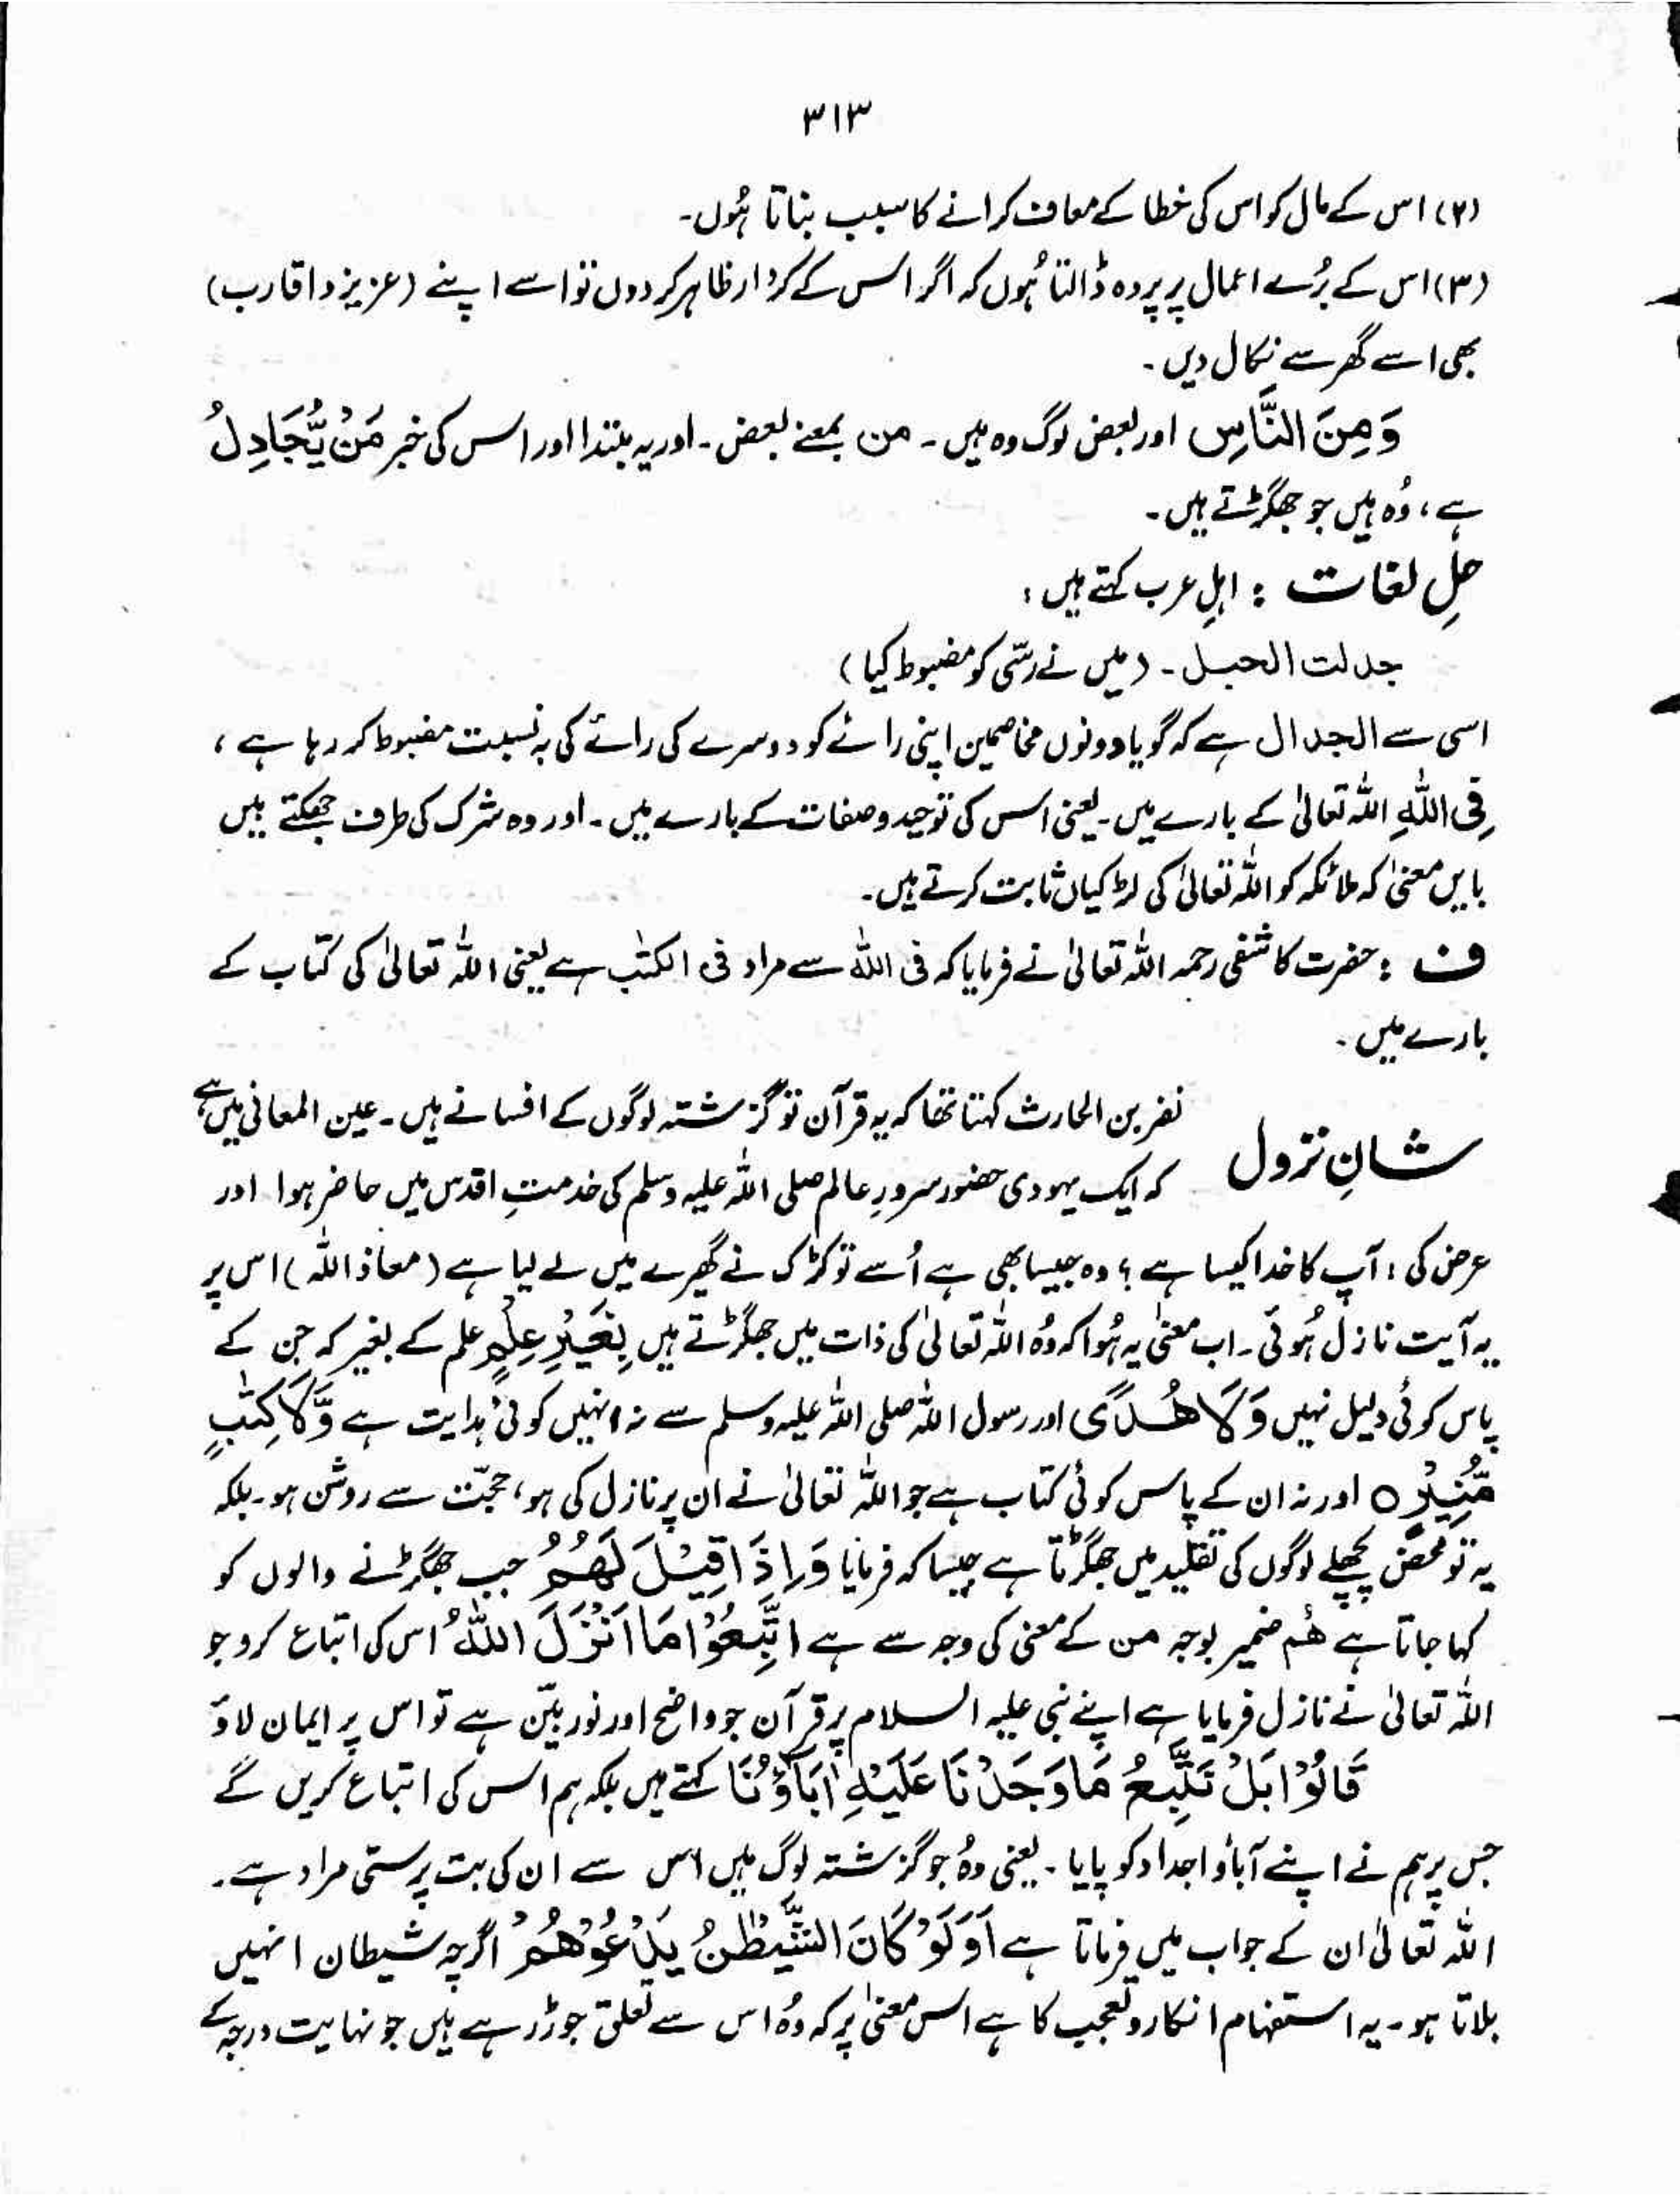 ۳۱۳
(۲) اس کے مال کو اس کی خطا کے معاف کرانے کا سبب بناتا ہُوں۔
(۳) اس کے بُرے اعمال پر پردہ ڈالتا ہُوں کہ اگر اس کے کردار ظاہر کر دوں تو اسے اپنے (عزیز و اقارب)
بھی اسے گھر سے نکال دیں۔
وَمِنَ النَّاسِ اور بعض لوگ وہ ہیں۔ من بمعنے بعض۔ اور یہ مبتدا اور اس کی خبر مَنْ یُّجَادِلُ
ہے، وُہ ہیں جو جھگڑتے ہیں۔
حلِ لغات : اہلِ عرب کہتے ہیں :
جدلت الحبل۔ (میں نے رسّی کو مضبوط کیا)
اسی سے الجدال ہے کہ گویا دونوں مخاصمین اپنی رائے کو دوسرے کی رائے کی بہ نسبت مضبوط کر رہا ہے،
فِی اللّٰہِ اللہ تعالیٰ کے بارے میں۔ یعنی اس کی توحید و صفات کے بارے میں۔ اور وہ شرک کی طرف جھکتے ہیں
بایں معنیٰ کہ ملائکہ کو اللہ تعالیٰ کی لڑکیاں ثابت کرتے ہیں۔
ف : حضرت کاشفی رحمہ اللہ تعالیٰ نے فرمایا کہ فی اللہ سے مراد فی الکتٰب ہے یعنی اللہ تعالیٰ کی کتاب کے
بارے میں۔
شانِ نزول نضر بن الحارث کہتا تھا کہ یہ قرآن تو گزشتہ لوگوں کے افسانے ہیں۔ عین المعانی میں ہے
کہ ایک یہودی حضور سرورِ عالم صلی اللہ علیہ وسلم کی خدمتِ اقدس میں حاضر ہوا اور
عرض کی : آپ کا خدا کیسا ہے ؟ وہ جیسا بھی ہے اُسے تو کڑک نے گھیرے میں لے لیا ہے (معاذ اللہ) اس پر
یہ آیت نازل ہُوئی۔ اب معنیٰ یہ ہُوا کہ وُہ اللہ تعالیٰ کی ذات میں جھگڑتے ہیں بِغَیْرِ عِلْمٍ علم کے بغیر کہ جن کے
پاس کوئی دلیل نہیں وَلَا ھُدًی اور رسول اللہ صلی اللہ علیہ وسلم سے نہ انہیں کوئی ہدایت ہے وَّلَا کِتٰبٍ
مُّنِیْرٍ ○ اور نہ ان کے پاس کوئی کتاب ہے جو اللہ تعالیٰ نے ان پر نازل کی ہو، حجّت سے روشن ہو۔ بلکہ
یہ تو محض پچھلے لوگوں کی تقلید میں جھگڑتا ہے جیسا کہ فرمایا وَاِذَا قِیْلَ لَھُمُ جب جھگڑنے والوں کو
کہا جاتا ہے ھُم ضمیر بوجہ من کے معنی کی وجہ سے ہے اتَّبِعُوْا مَا اَنْزَلَ اللّٰہُ اس کی اتباع کرو جو
اللہ تعالیٰ نے نازل فرمایا ہے اپنے نبی علیہ السلام پر قرآن جو واضح اور نور بیّن ہے تو اس پر ایمان لاؤ
قَالُوْا بَلْ نَتَّبِعُ مَا وَجَدْنَا عَلَیْہِ اٰبَآؤُنَا کہتے ہیں بلکہ ہم اس کی اتباع کریں گے
جس پر ہم نے اپنے آباؤ اجداد کو پایا۔ یعنی وہُ جو گزشتہ لوگ ہیں اس سے ان کی بت پرستی مراد ہے۔
اللہ تعالیٰ ان کے جواب میں فرماتا ہے اَوَلَوْ کَانَ الشَّیْطٰنُ یَدْعُوْھُمْ اگرچہ شیطان انہیں
بلاتا ہو۔ یہ استفہام انکار و تعجب کا ہے اس معنیٰ پر کہ وُہ اس سے تعلق جوڑ رہے ہیں جو نہایت درجہ کے